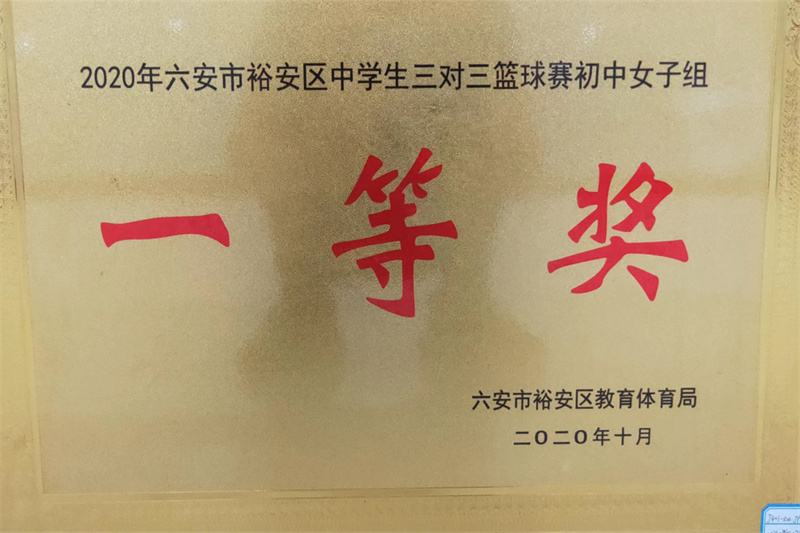 2020年六安市裕安区中学生三对三篮球赛初中女子组
一等奖
六安市裕安区教育体育局
二〇二〇年十月